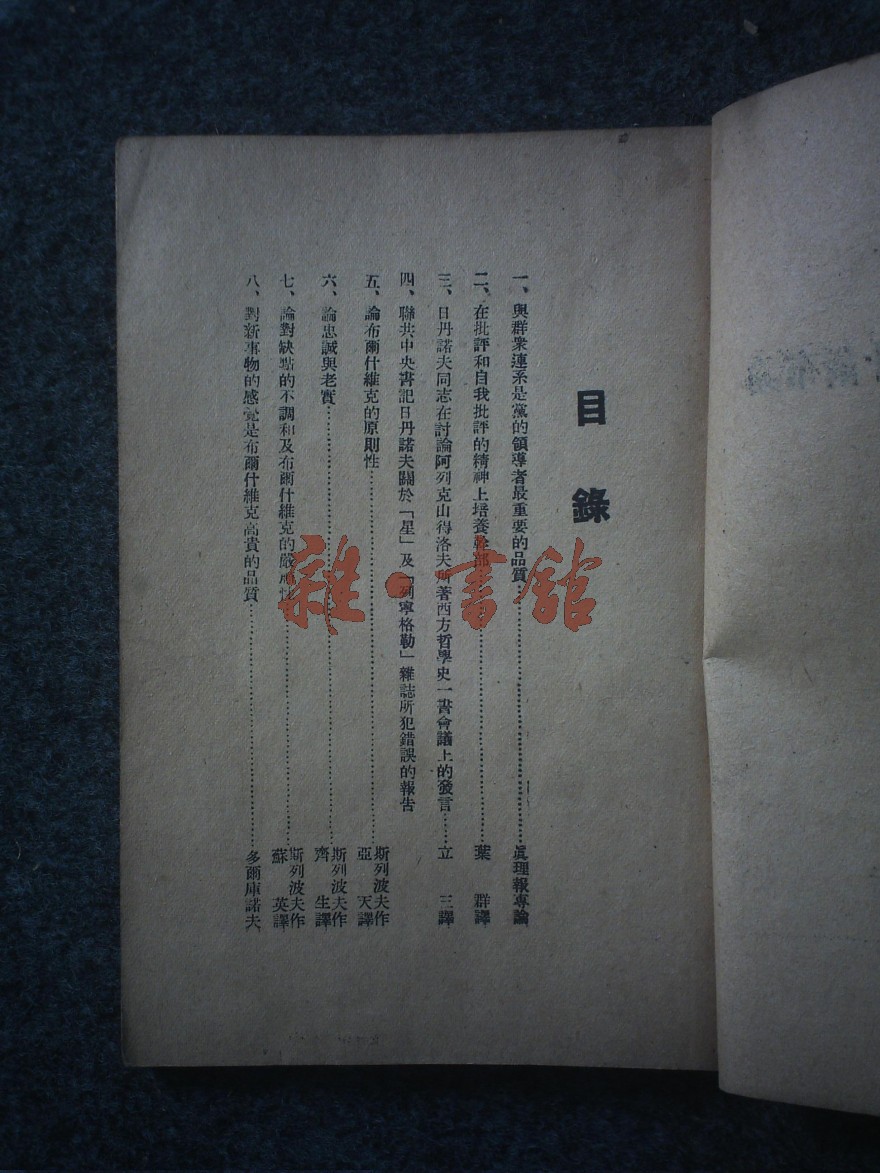 目錄
一、與群衆連系是黨的領導者最重要的品質……眞理報專論
二、在批評和自我批評的精神上培養幹部……葉群譯
三、日丹諾夫同志在討論阿列克山得洛夫所著西方哲學史一書會議上的發言……立三譯
四、聯共中央書記日丹諾夫關於「星」及「列寧格勒」雜誌所犯錯誤的報告
五、論布爾什維克的原則性……斯列波夫作 亞天譯
六、論忠誠與老實……斯列波夫作 齊生譯
七、論對缺點的不調和及布爾什維克的嚴性……斯列波夫作 蘇英譯
八、對新事物的感覺是布爾什維克高貴的品質……多爾庫諾夫
雜·書館